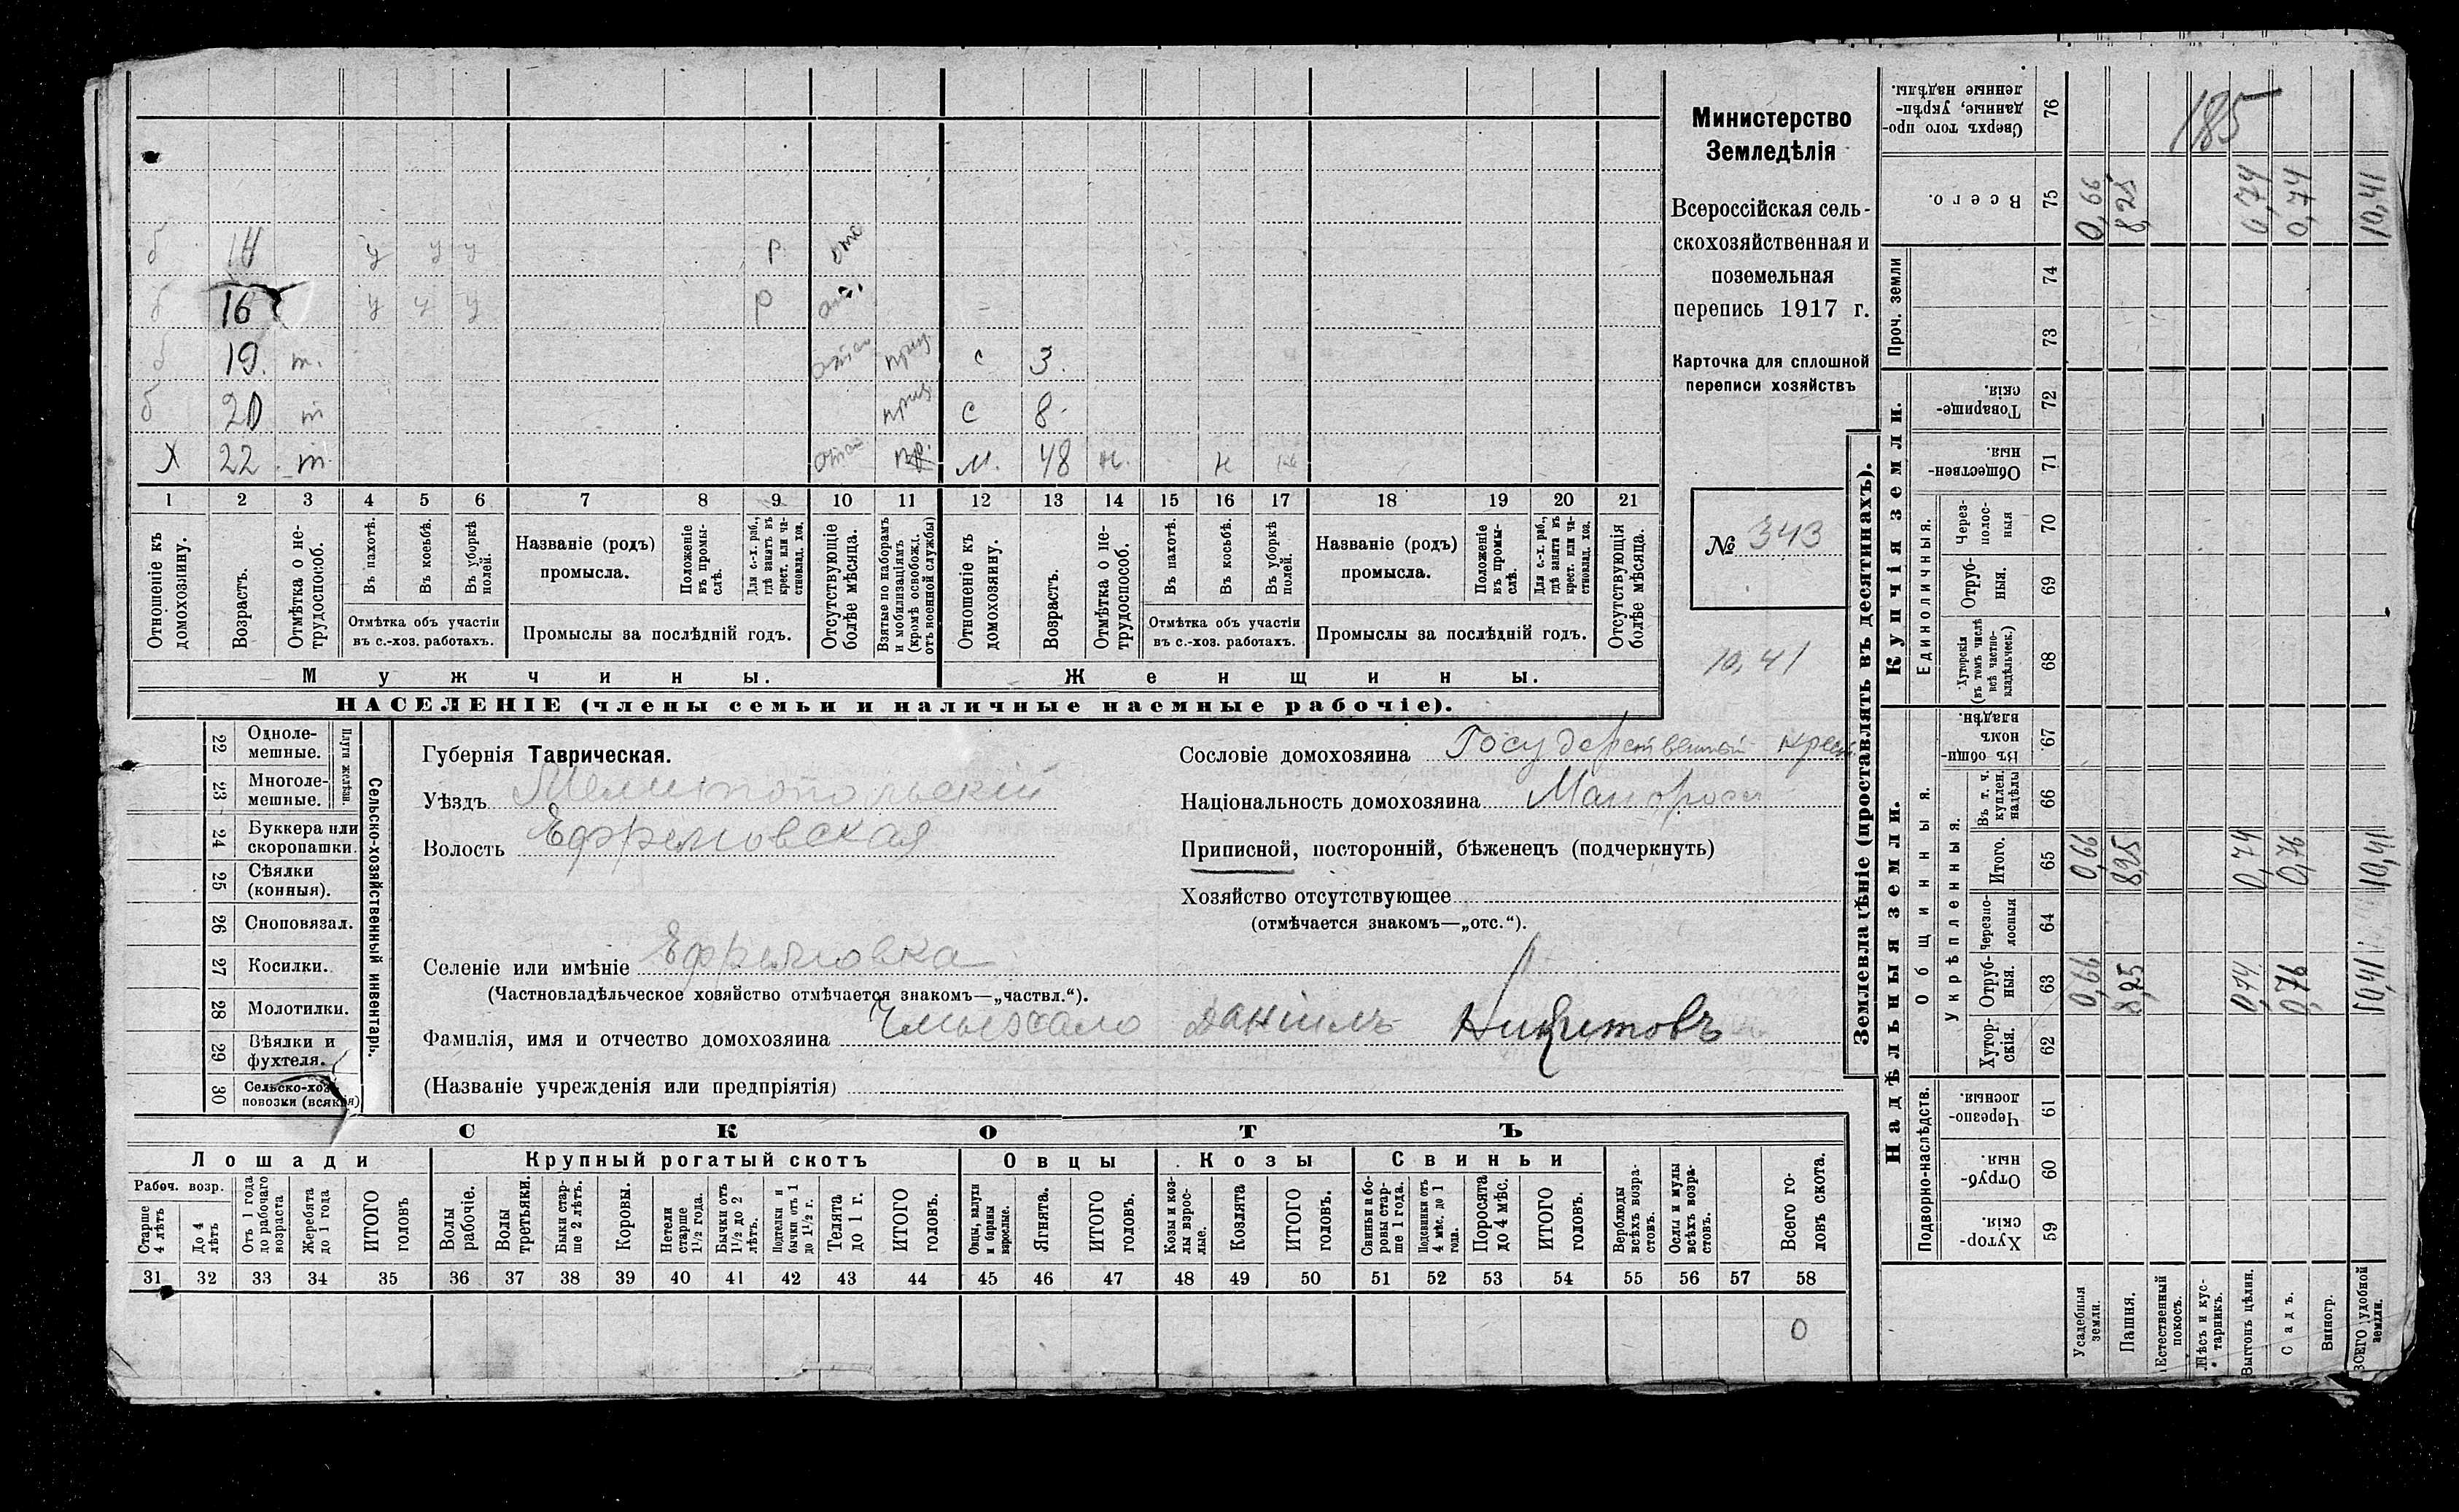 Министерство
Земледѣлія
Всероссійская сель-
скохозяйственная и
поземельная
перепись 1917 г.
Карточка для сплошной
переписи хозяйствъ
№ 343
10,41
б 14 у у у р отс
б 16 у у у р
б 19. т. с 3.
б 20 т с 8.
Х 22 т. м. 48 н. н
1 2 3 4 5 6 7 8 9 10 11 12 13 14 15 16 17 18 19 20 21
Отношеніе къ домохозяину.
Возрастъ.
Отмѣтка о не-трудоспособ.
Въ пахотѣ.
Въ косьбѣ.
Въ уборкѣ полей.
Отмѣтка объ участіи въ с.-хоз. работахъ.
Названіе (родъ) промысла.
Положеніе въ промы-слѣ.
Для с.-х. раб., гдѣ занятъ въ крест. или ча-стновлад. хоз.
Промыслы за послѣдній годъ.
Отсутствующіе болѣе мѣсяца.
Взятые по наборамъ и мобилизаціямъ (кромѣ освобожд. отъ военной службы)
Отношеніе къ домохозяину.
Возрастъ.
Отмѣтка о не-трудоспособ.
Въ пахотѣ.
Въ косьбѣ.
Въ уборкѣ полей.
Отмѣтка объ участіи въ с.-хоз. работахъ.
Названіе (родъ) промысла.
Положеніе въ промы-слѣ.
Для с.-х. раб., гдѣ занята въ крест. или ча-стновлад. хоз.
Промыслы за послѣдній годъ.
Отсутствующія болѣе мѣсяца.
Мужчины. Женщины.
НАСЕЛЕНІЕ (члены семьи и наличные наемные рабочіе).
22 Одноле-мешные.
23 Многоле-мешные.
Плуги желѣзн.
24 Буккера или скоропашки.
25 Сѣялки (конныя).
26 Сноповязал.
27 Косилки.
28 Молотилки.
29 Вѣялки и фухтеля.
30 Сельско-хоз. повозки (всякія)
Сельско-хозяйственный инвентарь.
Губернія Таврическая.
Уѣздъ Мелитопольскій
Волость Ефремовская
Селеніе или имѣніе Ефремовка
(Частновладѣльческое хозяйство отмѣчается знакомъ—„частвл.“).
Фамилія, имя и отчество домохозяина Даніилъ Никитовъ
(Названіе учрежденія или предпріятія)
Сословіе домохозяина Государственный крест
Національность домохозяина Малоросс
Приписной, посторонній, бѣженецъ (подчеркнуть)
Хозяйство отсутствующее
(отмѣчается знакомъ—„отс.“).
СКОТЪ
Лошади Крупный рогатый скотъ Овцы Козы Свиньи
Рабоч. возр.
Старше 4 лѣтъ
До 4 лѣтъ
Отъ 1 года до рабочаго возраста
Жеребята до 1 года
ИТОГО головъ
Волы рабочіе.
Волы третьяки.
Быки стар-ше 2 лѣтъ.
Коровы.
Нетели старше 1½ года.
Бычки отъ 1½ до 2 лѣтъ.
Подтелки и бычки отъ 1 до 1½ г.
Телята до 1 г.
ИТОГО головъ.
Овцы, валухи и бараны взрослые.
Ягнята.
ИТОГО головъ.
Козы и коз-лы взрос-лые.
Козлята
ИТОГО головъ.
Свиньи и бо-ровы стар-ше 1 года.
Подсвинки отъ 4 мѣс. до 1 года.
Поросята до 4 мѣс.
ИТОГО головъ.
Верблюды всѣхъ возра-стовъ.
Ослы и мулы всѣхъ возра-стовъ.
Всего го-ловъ скота.
31 32 33 34 35 36 37 38 39 40 41 42 43 44 45 46 47 48 49 50 51 52 53 54 55 56 57 58
0
Землевладѣніе (проставлять въ десятинахъ).
Надѣльныя земли. Купчія земли.
Подворно-наслѣдств.
Общинныя.
Укрѣпленныя.
Единоличныя.
Проч. земли
Хутор-скія. 59
Отруб-ныя. 60
Черезпо-лосныя. 61
Хутор-скія. 62
Отруб-ныя. 63
Черезпо-лосныя 64
Итого. 65
Въ т. ч. куплен. надѣлы 66
Въ общи-номъ владѣн. 67
Хуторскія (въ томъ числѣ всѣ частно-владѣльческ.) 68
Отруб-ныя. 69
Через-полос-ныя 70
Обществен-ныя. 71
Товарище-скія. 72
73
74
Всего. 75
Сверхъ того про-данные, укрѣп-ленные надѣлы. 76
185
Усадебныя земли. 0,66 0,66 0,66
Пашня. 8,25 8,25 8,25
Естественный покосъ.
Лѣсъ и кус-тарникъ.
Выгонъ цѣлин. 0,74 0,74 0,74
Садъ. 0,76 0,76 0,74
Виногр.
ВСЕГО удобной земли. 10,41 10,41 10,41